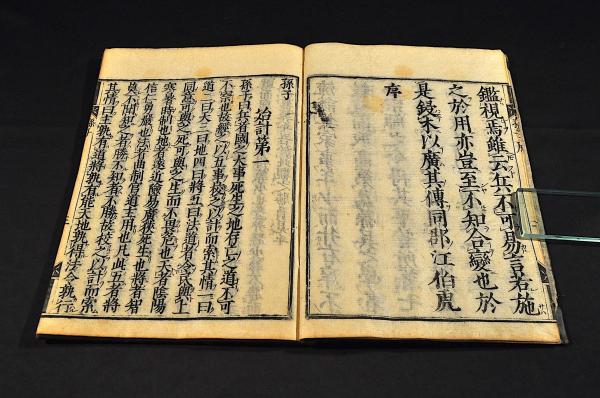 鑑視焉雖云兵不可易言若施
之於用亦豈至不知合變也於
是鋟木以廣其傳同郡江伯虎
序
孫子
始計第一
孫子曰兵者國之大事死生之地存亡之道不可
不察也故經之以五事校之以計而索其情一曰
道二曰天三曰地四曰將五曰法道者令民與上
同意可與之死可與之生而不畏危也天者陰陽
寒暑時制也地者遠近險易廣狹死生也將者智
信仁勇嚴也法者曲制官道主用也凡此五者將
莫不聞知之者勝不知者不勝故校之以計而索
其情曰主孰有道將孰有能天地孰得法令孰行